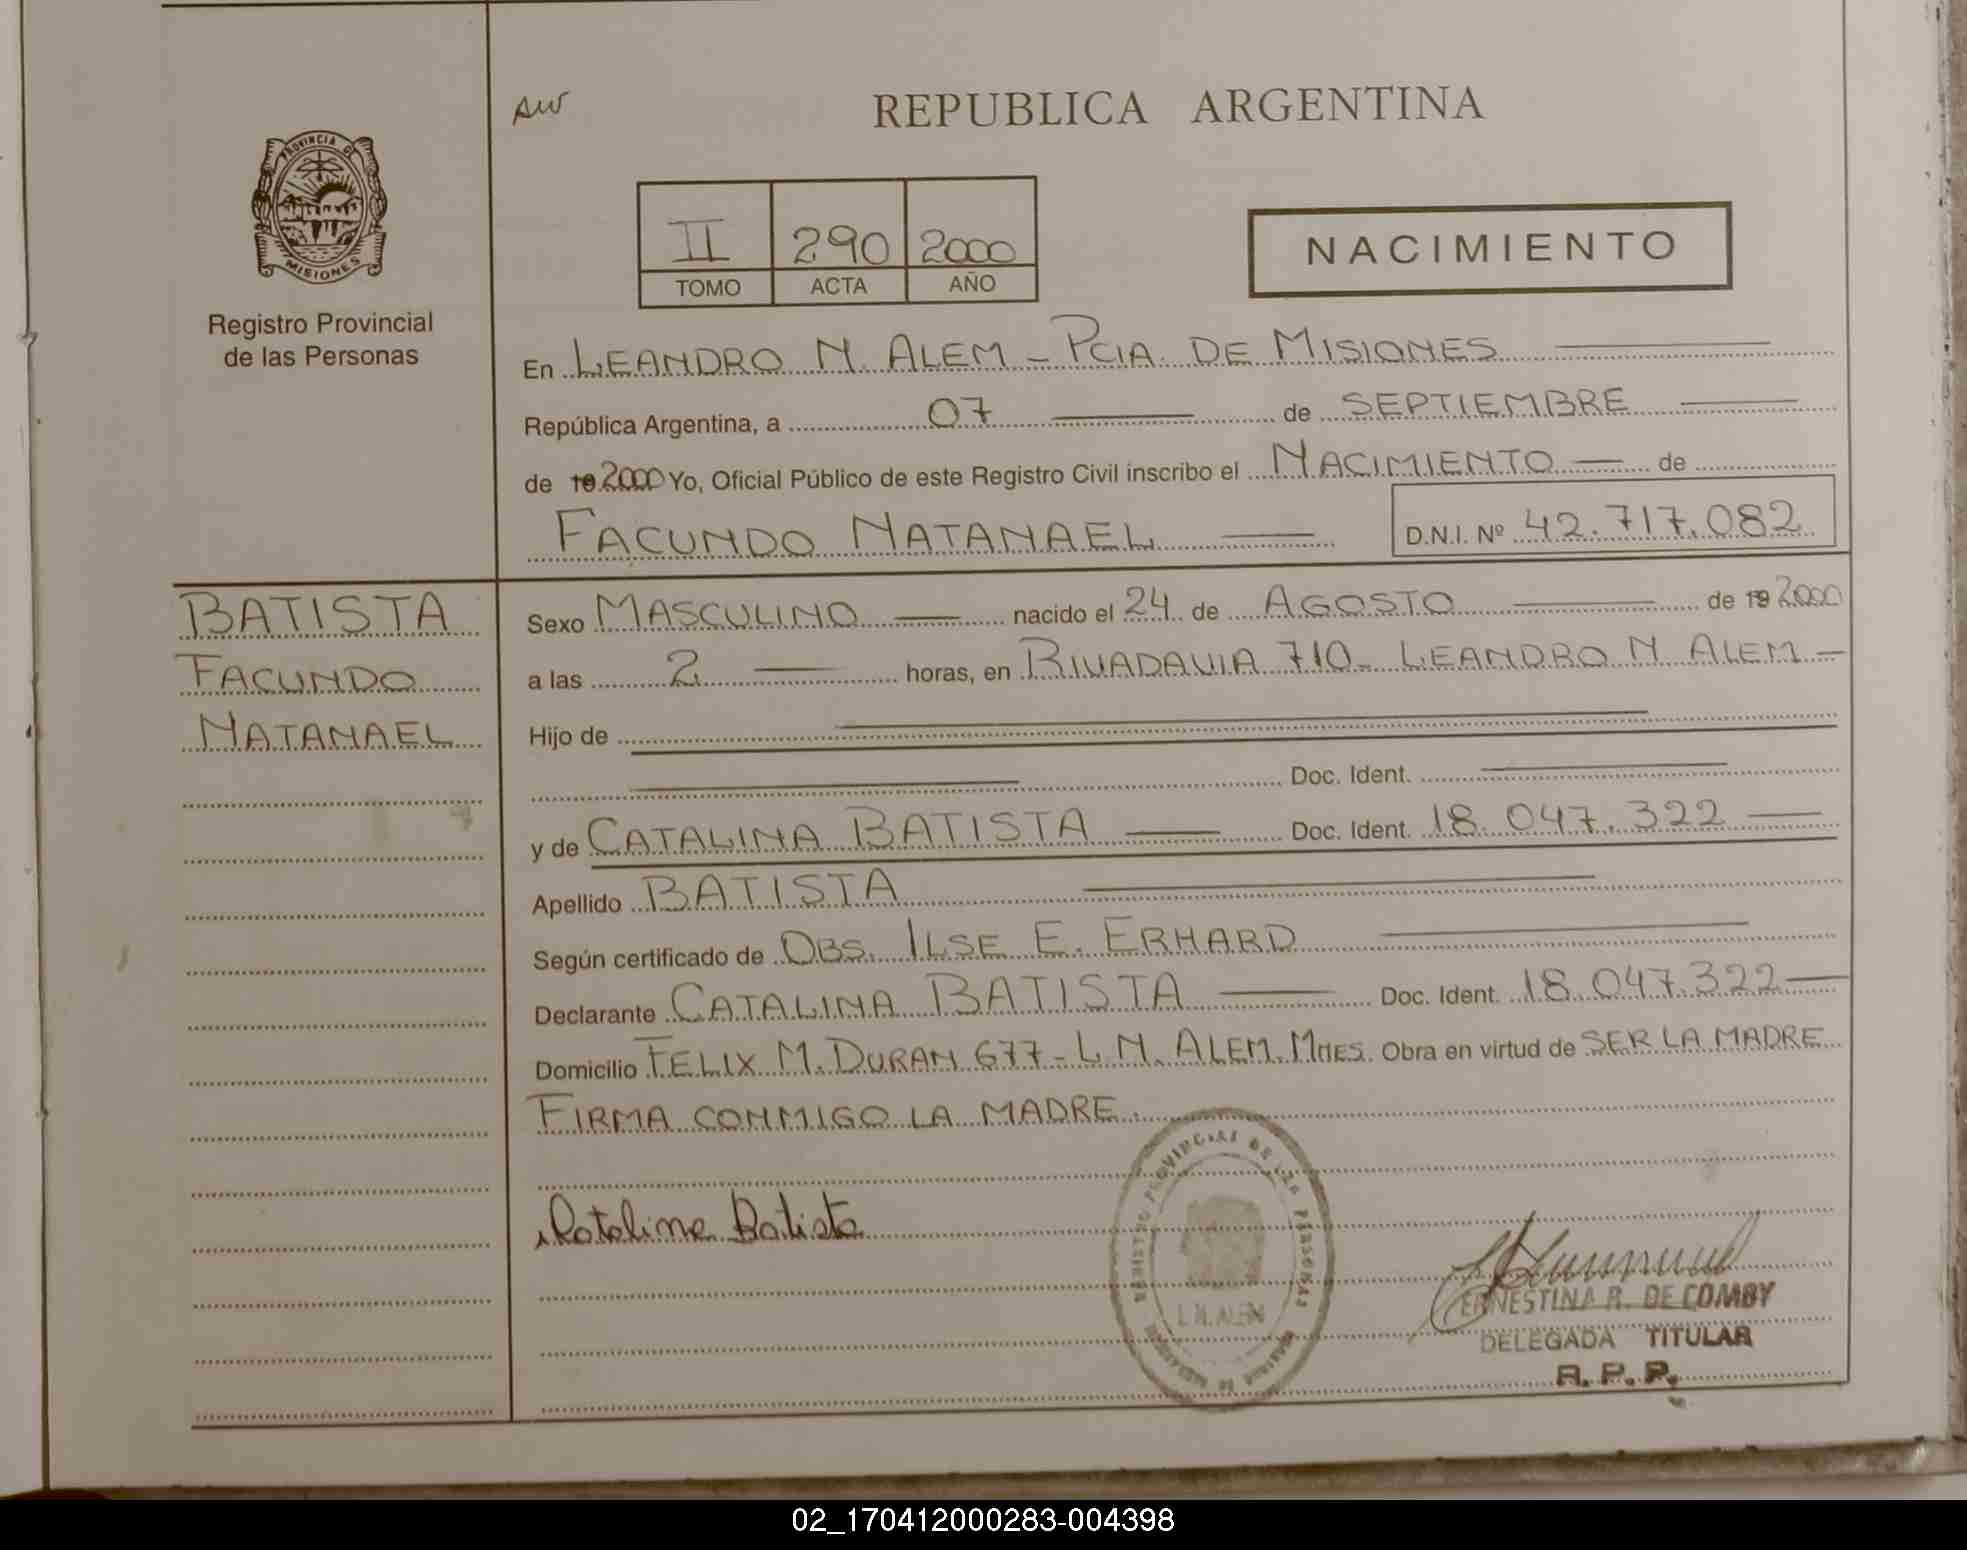 AW
REPUBLICA ARGENTINA
PROVINCIA DE
MISIONES
Registro Provincial
de las Personas
II 290 2000
TOMO ACTA AÑO
NACIMIENTO
En LEANDRO N. ALEM - PCIA. DE MISIONES
República Argentina, a 07 de SEPTIEMBRE
de 19 2000 Yo, Oficial Público de este Registro Civil inscribo el NACIMIENTO de
FACUNDO NATANAEL D.N.I. Nº 42.717.082
BATISTA
FACUNDO
NATANAEL
Sexo MASCULINO nacido el 24 de AGOSTO de 19 2000
a las 2 horas, en RIVADAVIA 710 - LEANDRO N. ALEM -
Hijo de
Doc. Ident.
y de CATALINA BATISTA Doc. Ident. 18.047.322
Apellido BATISTA
Según certificado de OBS. ILSE E. ERHARD
Declarante CATALINA BATISTA Doc. Ident. 18.047.322
Domicilio FELIX M. DURAN 677 - L. N. ALEM. MNES. Obra en virtud de SER LA MADRE
FIRMA CONMIGO LA MADRE.
Catalina Batista
REGISTRO PROVINCIAL DE LAS PERSONAS
L.N. ALEM
ERNESTINA R. DE COMBY
DELEGADA TITULAR
R. P. P.
02_170412000283-004398